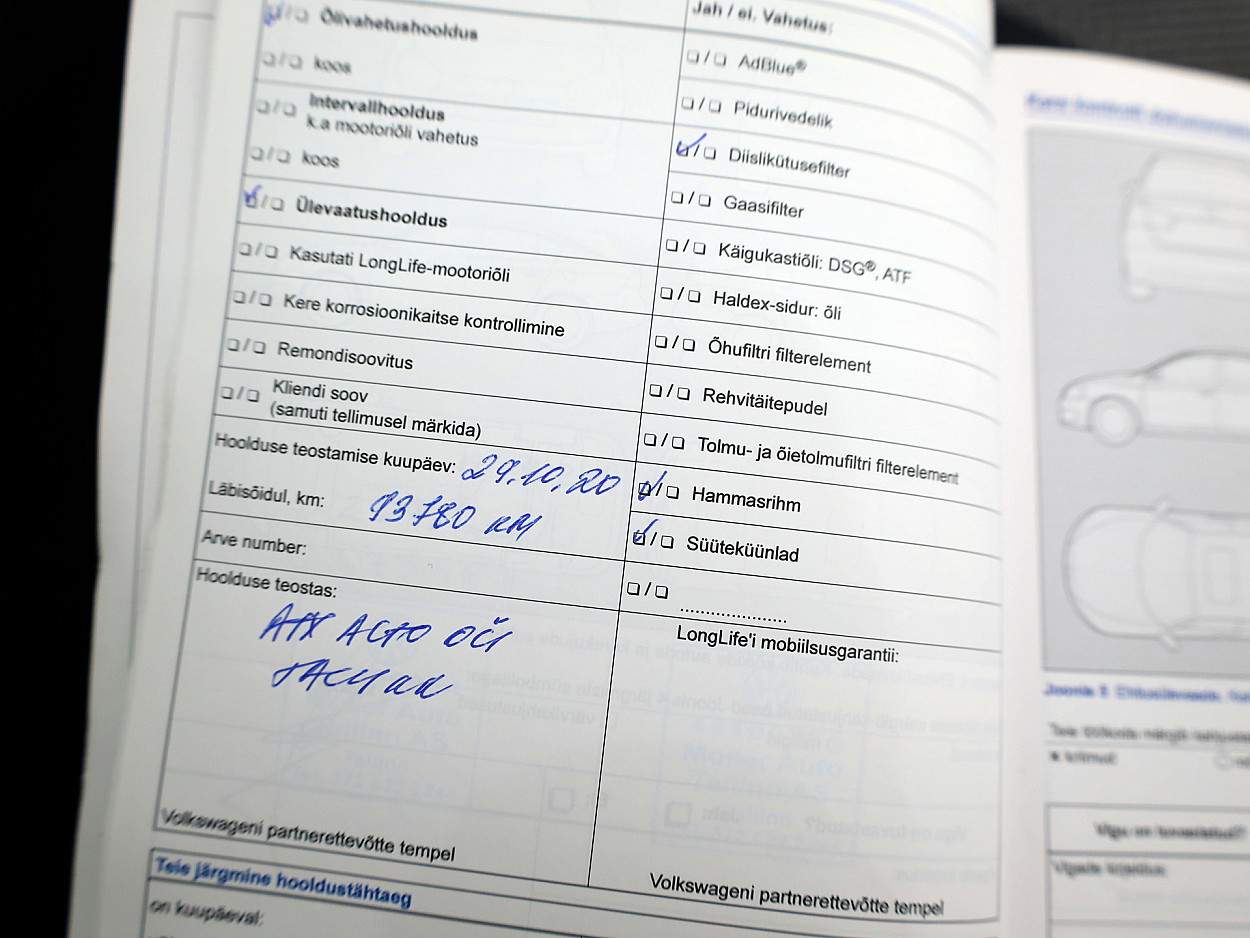 Õlivahetushooldus
koos
Intervallhooldus
k.a mootoriõli vahetus
koos
Ülevaatushooldus
Kasutati LongLife-mootoriõli
Kere korrosioonikaitse kontrollimine
Remondisoovitus
Kliendi soov
(samuti tellimusel märkida)
Hoolduse teostamise kuupäev: 29.10.20
Läbisõidul, km: 93780 KM
Arve number:
Hoolduse teostas:
AUTO OÜ
Volkswageni partnerettevõtte tempel
Jah / ei. Vahetus:
AdBlue®
Pidurivedelik
Diislikütusefilter
Gaasifilter
Käigukastiõli: DSG®, ATF
Haldex-sidur: õli
Õhufiltri filterelement
Rehvitäitepudel
Tolmu- ja õietolmufiltri filterelement
Hammasrihm
Süüteküünlad
....................
LongLife'i mobiilsusgarantii:
Volkswageni partnerettevõtte tempel
Teie järgmine hooldustähtaeg
on kuupäeval: